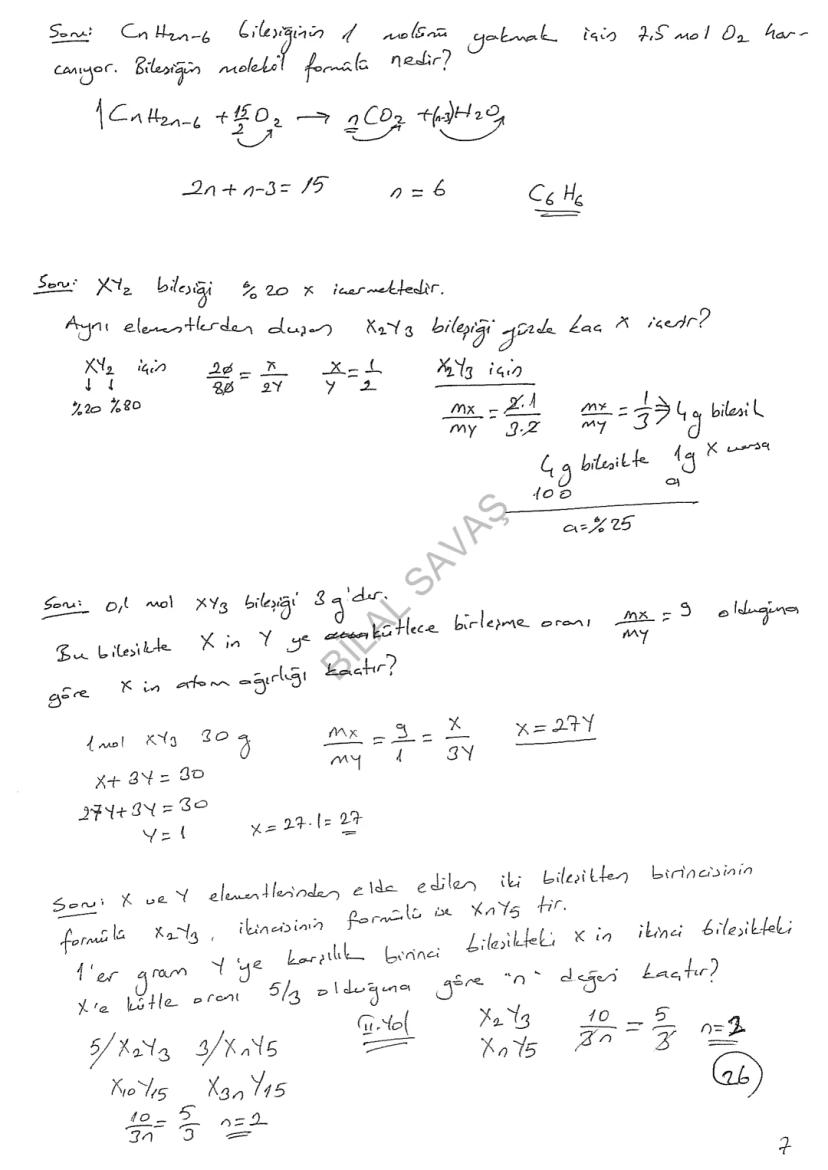 Soru: CnH2n-6 bileşiğinin 1 molünü yakmak için 7,5 mol O2 har-
canıyor. Bileşiğin molekül formülü nedir?
1CnH2n-6 + 15/2 O2 → nCO2 + (n-3)H2O
2n+n-3=15 n=6 C6H6
Soru: XY2 bileşiği %20 X içermektedir.
Aynı elementlerden oluşan X2Y3 bileşiği yüzde kaç X içerir?
XY2 için 20/80 = X/2Y X/Y = 1/2 X2Y3 için
↓ ↓
%20 %80
mx/my = 2.1/3.2 mx/my = 1/3 ⇒ 4g bileşik
4g bileşikte 1g X varsa
100 a
a=%25
BİLAL SAVAŞ
Soru: 0,1 mol XY3 bileşiği 3 g'dır.
Bu bileşikte X in Y ye kütlece birleşme oranı mx/my = 9 olduğuna
göre X in atom ağırlığı kaçtır?
1 mol XY3 30 g mx/my = 9/1 = X/3Y X=27Y
X+3Y=30
27Y+3Y=30
Y=1 X=27.1=27
Soru: X ve Y elementlerinden elde edilen iki bileşikten birincisinin
formülü X2Y3, ikincisinin formülü ise XnY5 tir.
1'er gram Y'ye karşılık birinci bileşikteki X in ikinci bileşikteki
X'e kütle oranı 5/3 olduğuna göre "n" değeri kaçtır?
5/X2Y3 3/XnY5 II.Yol X2Y3 10/3n = 5/3 n=2
XnY5
X10Y15 X3nY15
26
10/3n = 5/3 n=2
7